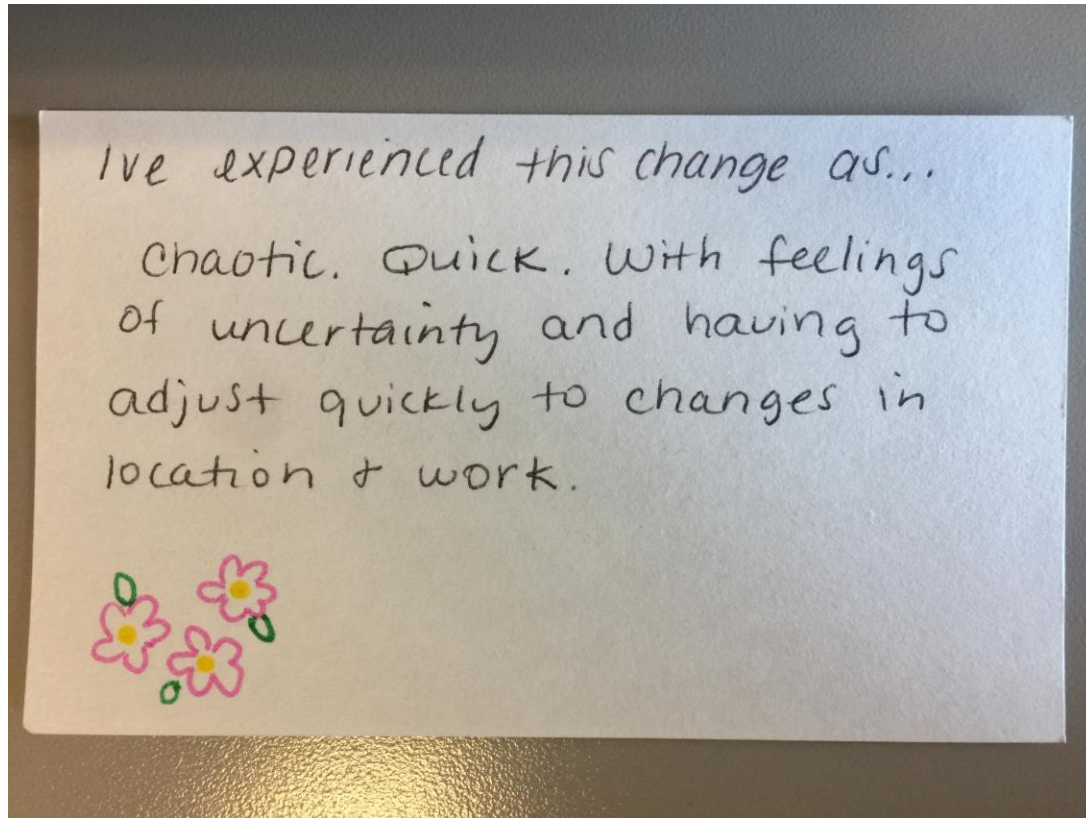 Ive experienced this change as...
Chaotic. Quick. With feelings
of uncertainty and having to
adjust quickly to changes in
location & work.